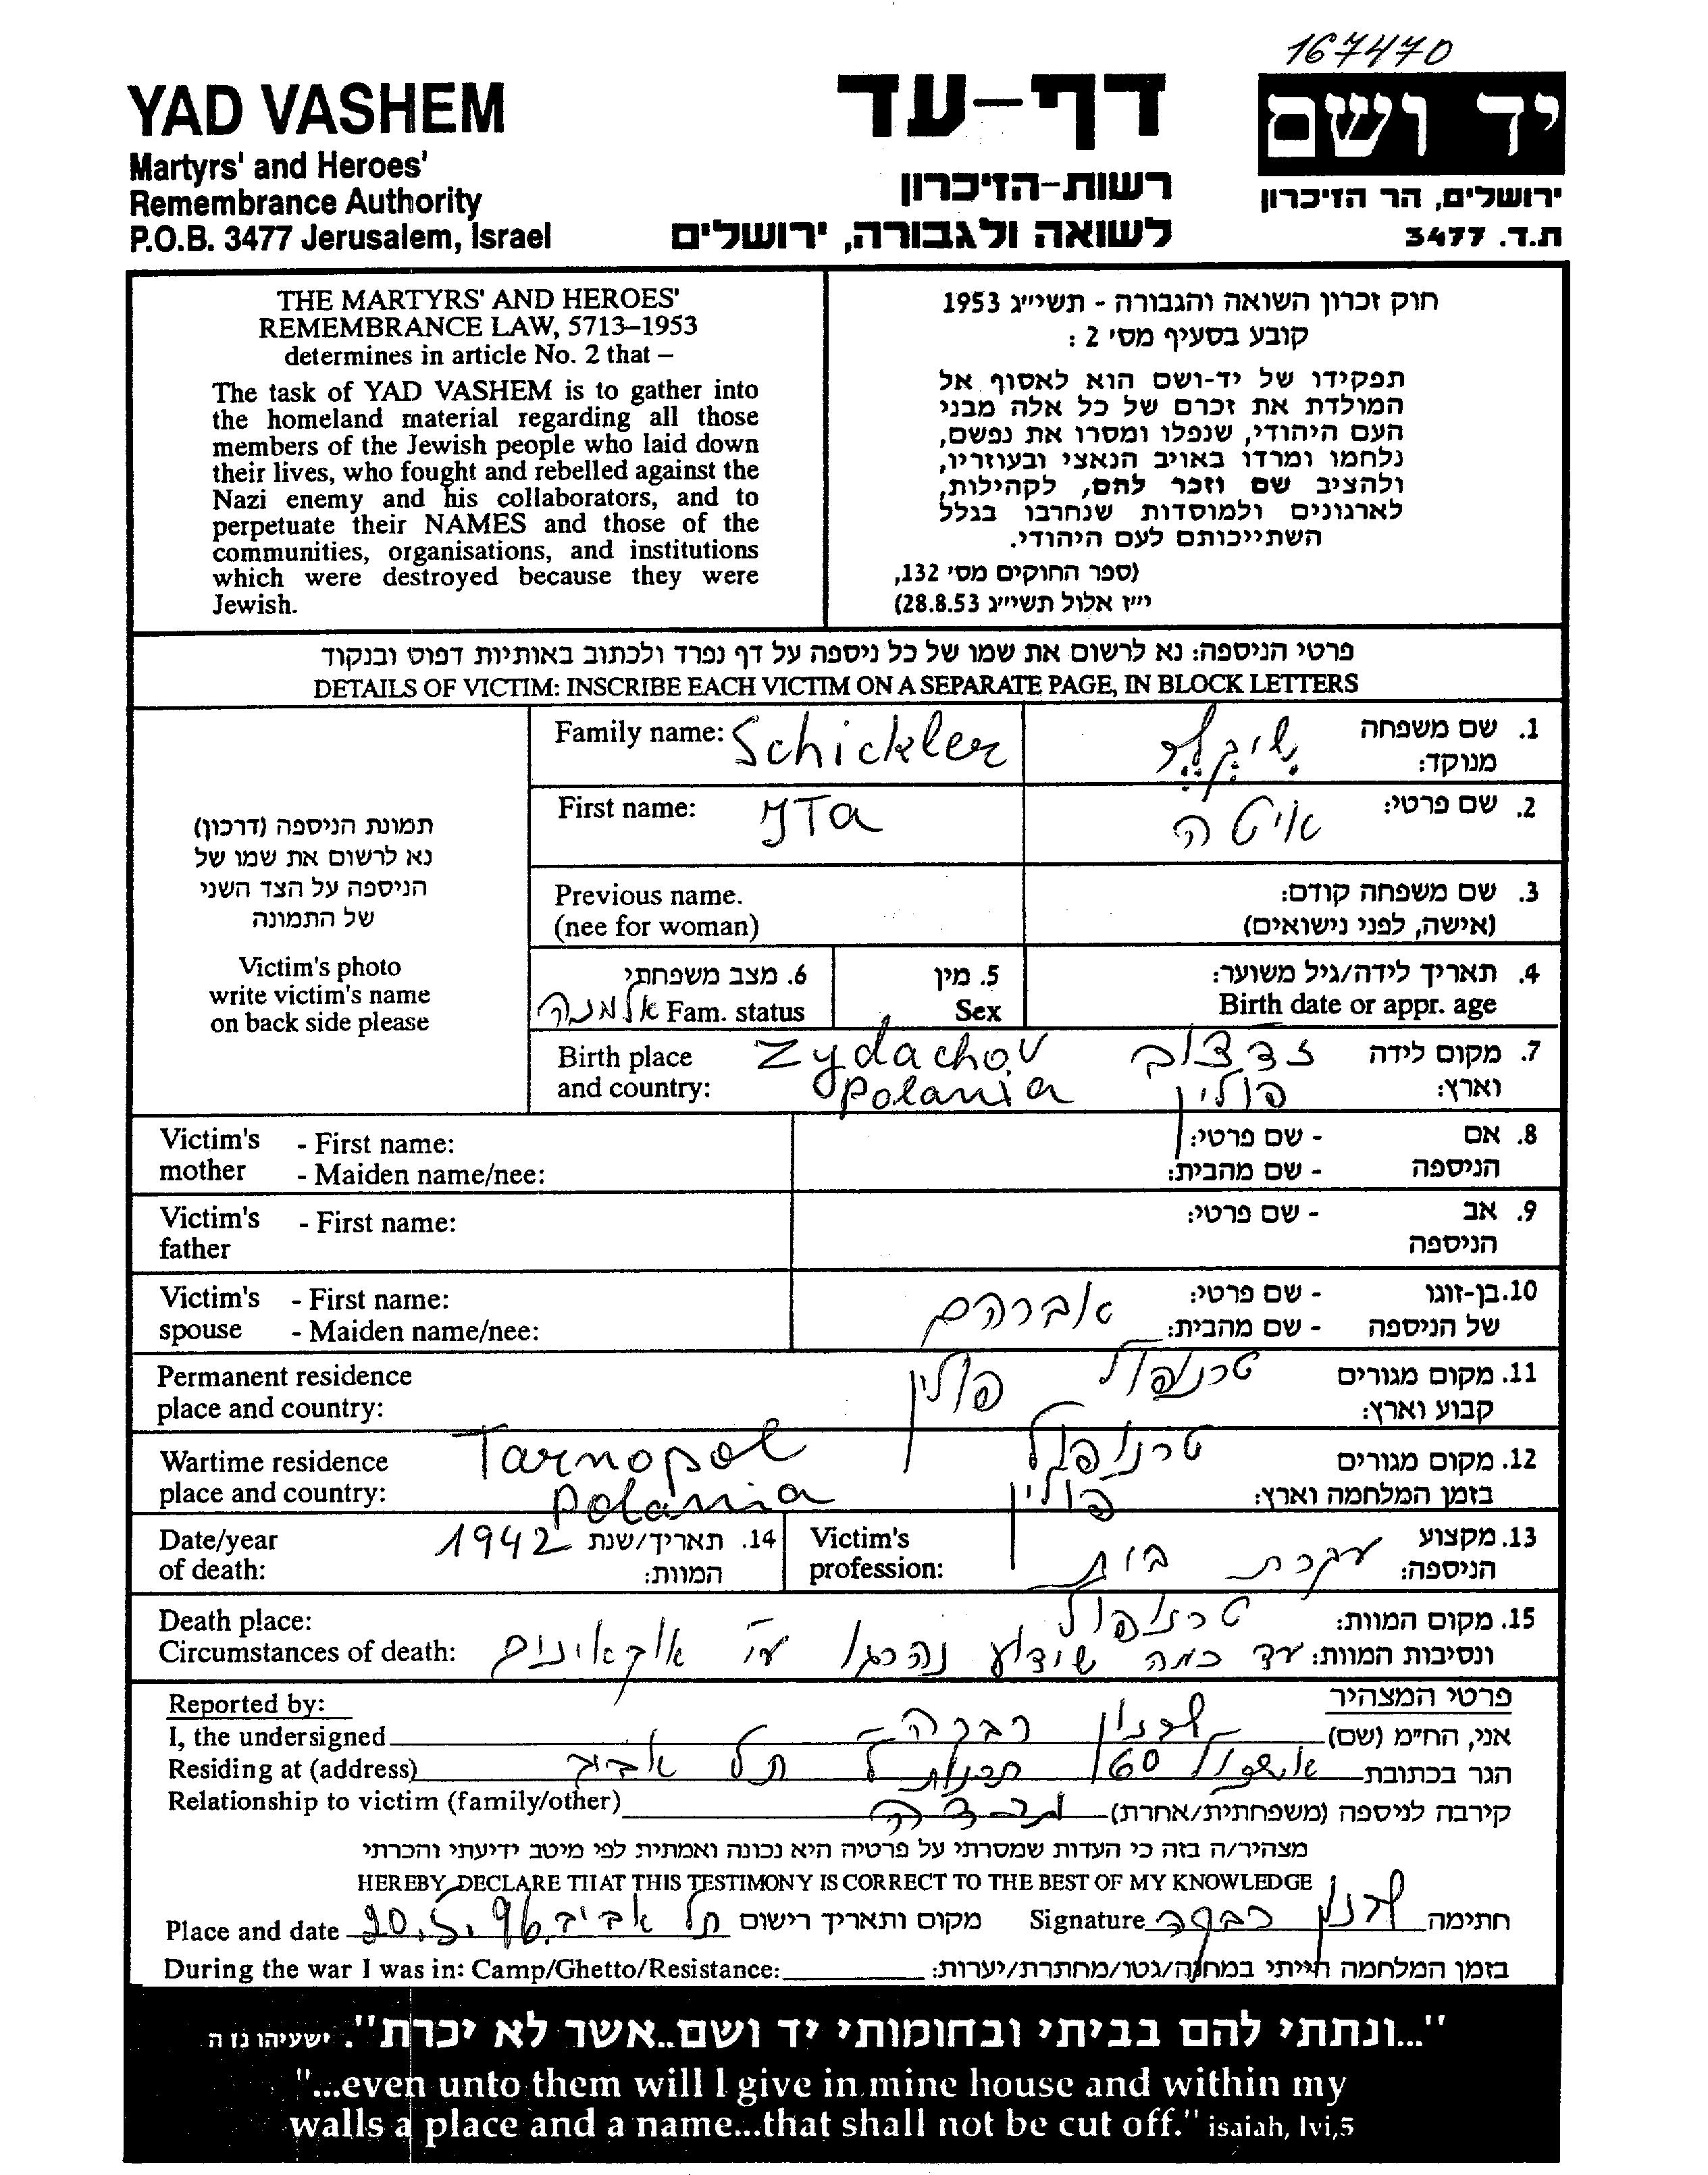 167470
YAD VASHEM
Martyrs' and Heroes'
Remembrance Authority
P.O.B. 3477 Jerusalem, Israel
דף-עד
רשות-הזיכרון
לשואה ולגבורה, ירושלים
יד ושם
ירושלים, הר הזיכרון
ת.ד. 3477
THE MARTYRS' AND HEROES'
REMEMBRANCE LAW, 5713–1953
determines in article No. 2 that –
The task of YAD VASHEM is to gather into
the homeland material regarding all those
members of the Jewish people who laid down
their lives, who fought and rebelled against the
Nazi enemy and his collaborators, and to
perpetuate their NAMES and those of the
communities, organisations, and institutions
which were destroyed because they were
Jewish.
חוק זכרון השואה והגבורה - תשי״ג 1953
קובע בסעיף מס' 2 :
תפקידו של יד-ושם הוא לאסוף אל
המולדת את זכרם של כל אלה מבני
העם היהודי, שנפלו ומסרו את נפשם,
נלחמו ומרדו באויב הנאצי ובעוזריו,
ולהציב שם וזכר להם, לקהילות,
לארגונים ולמוסדות שנחרבו בגלל
השתייכותם לעם היהודי.
(ספר החוקים מס' 132,
י״ז אלול תשי״ג 28.8.53)
פרטי הניספה: נא לרשום את שמו של כל ניספה על דף נפרד ולכתוב באותיות דפוס ובנקוד
DETAILS OF VICTIM: INSCRIBE EACH VICTIM ON A SEPARATE PAGE, IN BLOCK LETTERS
תמונת הניספה (דרכון)
נא לרשום את שמו של
הניספה על הצד השני
של התמונה
Victim's photo
write victim's name
on back side please
Family name: Schickler
1. שם משפחה מנוקד: שיקלר
First name: ITa
2. שם פרטי: איטה
Previous name.
(nee for woman)
3. שם משפחה קודם:
(אישה, לפני נישואים)
6. מצב משפחתי
Fam. status אלמנה
5. מין
Sex
4. תאריך לידה/גיל משוער:
Birth date or appr. age
Birth place Zydachov
and country: Polania
7. מקום לידה
וארץ: פולין
Victim's mother - First name:
- Maiden name/nee:
8. אם - שם פרטי:
הניספה - שם מהבית:
Victim's father - First name:
9. אב - שם פרטי:
הניספה
Victim's spouse - First name:
- Maiden name/nee:
10. בן-זוגו - שם פרטי: אברהם
של הניספה - שם מהבית:
Permanent residence
place and country:
11. מקום מגורים טרנופול
קבוע וארץ: פולין
Wartime residence Tarnopol
place and country: Polania
12. מקום מגורים טרנופול
בזמן המלחמה וארץ: פולין
Date/year
of death: 1942
14. תאריך/שנת
המוות:
Victim's
profession:
13. מקצוע
הניספה: עקרת בית
Death place:
Circumstances of death:
15. מקום המוות: טרנופול
ונסיבות המוות: עד כמה שידוע נהרגו ע״י אוקראינים
Reported by:
פרטי המצהיר
I, the undersigned
אני, הח״מ (שם) רבקה
Residing at (address)
הגר בכתובת אשכול 60 תל אביב
Relationship to victim (family/other)
קירבה לניספה (משפחתית/אחרת) נכדה
מצהיר/ה בזה כי העדות שמסרתי על פרטיה היא נכונה ואמתית לפי מיטב ידיעתי והכרתי
HEREBY DECLARE THAT THIS TESTIMONY IS CORRECT TO THE BEST OF MY KNOWLEDGE
Place and date 20.5.96 תל אביב מקום ותאריך רישום
Signature רבקה חתימה
During the war I was in: Camp/Ghetto/Resistance:
בזמן המלחמה הייתי במחנה/גטו/מחתרת/יערות:
"...ונתתי להם בביתי ובחומותי יד ושם..אשר לא יכרת". ישעיהו נו ה
"...even unto them will I give in mine house and within my
walls a place and a name...that shall not be cut off." isaiah, lvi,5